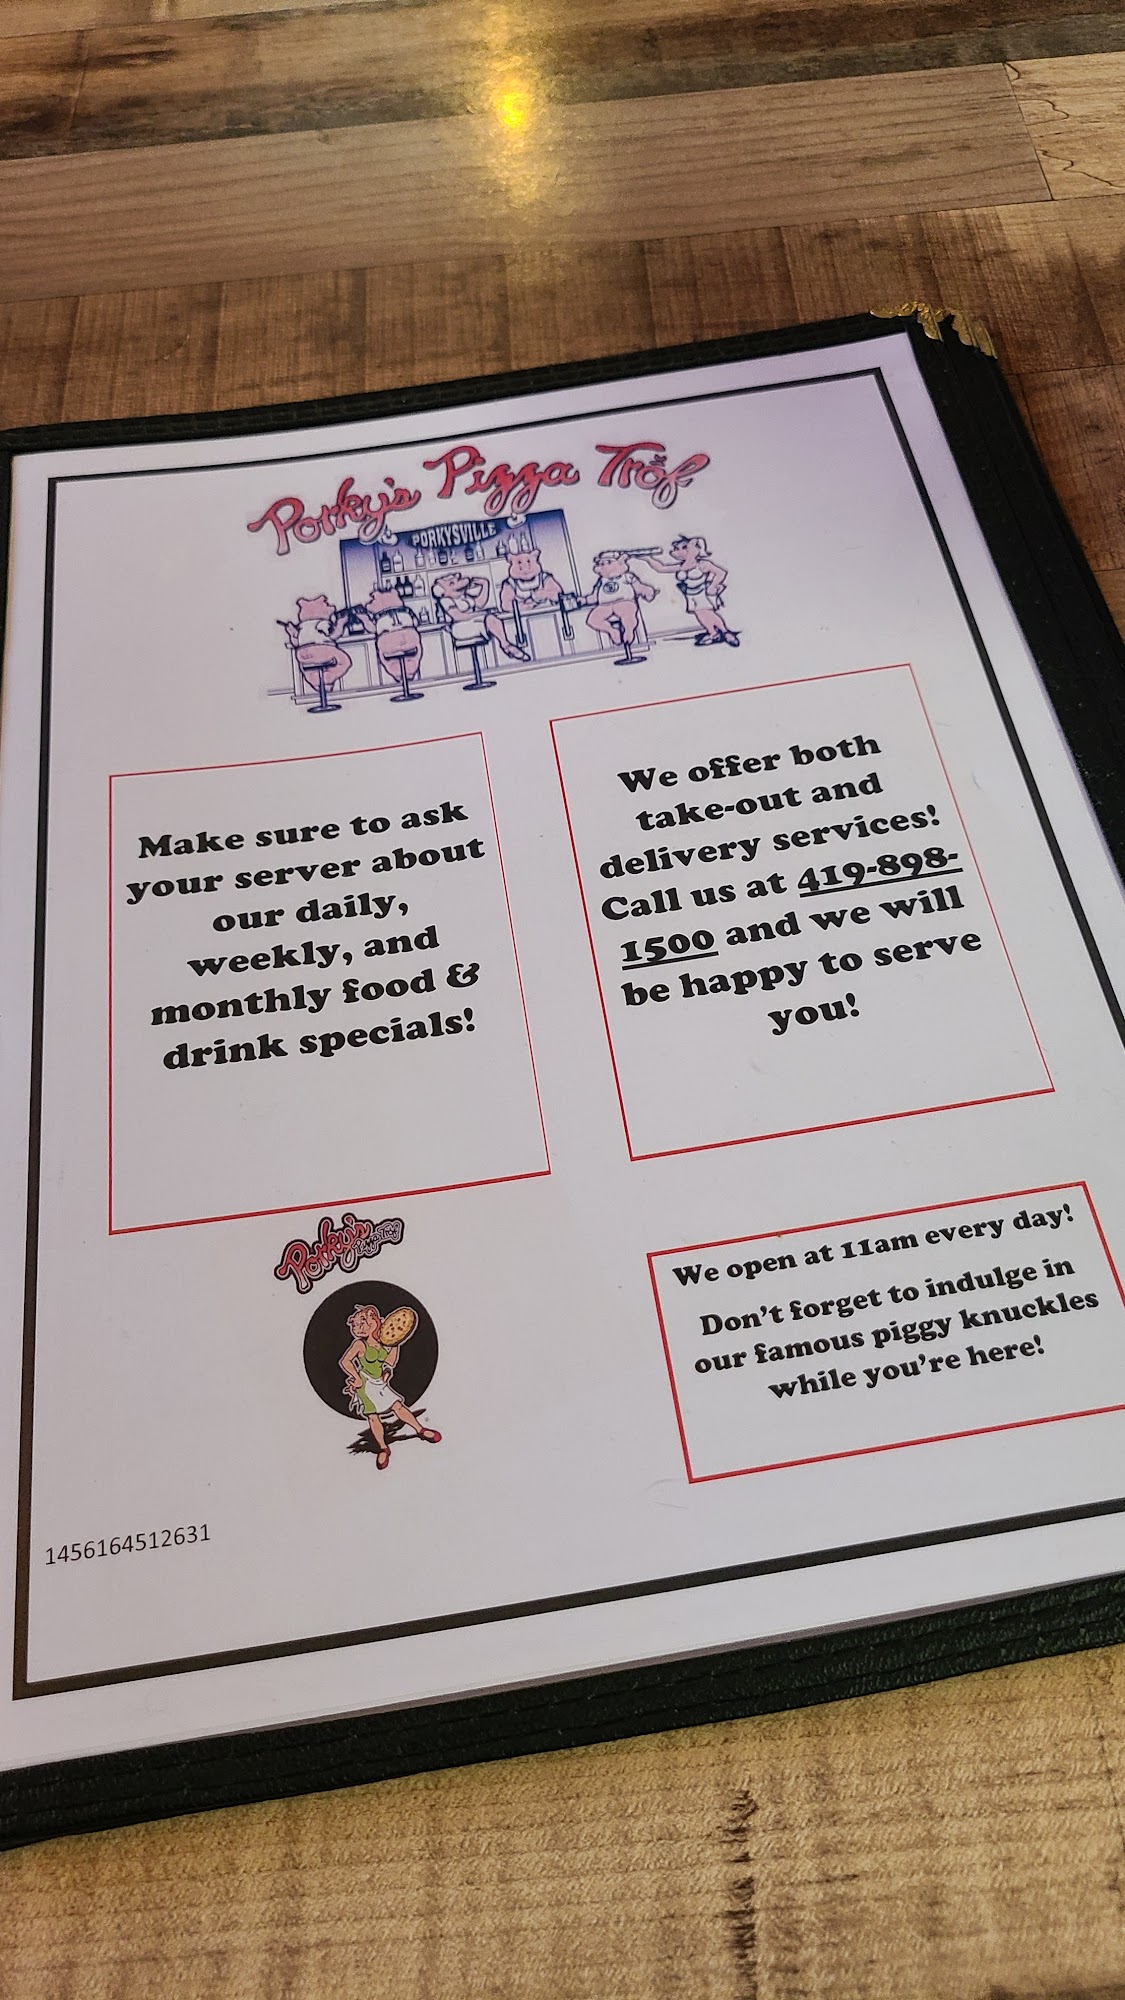 Porky's Pizza Tröf
PORKYSVILLE
Make sure to ask
your server about
our daily,
weekly, and
monthly food &
drink specials!
We offer both
take-out and
delivery services!
Call us at 419-898-
1500 and we will
be happy to serve
you!
Porky's
Pizza Tröf
We open at 11am every day!
Don't forget to indulge in
our famous piggy knuckles
while you're here!
1456164512631